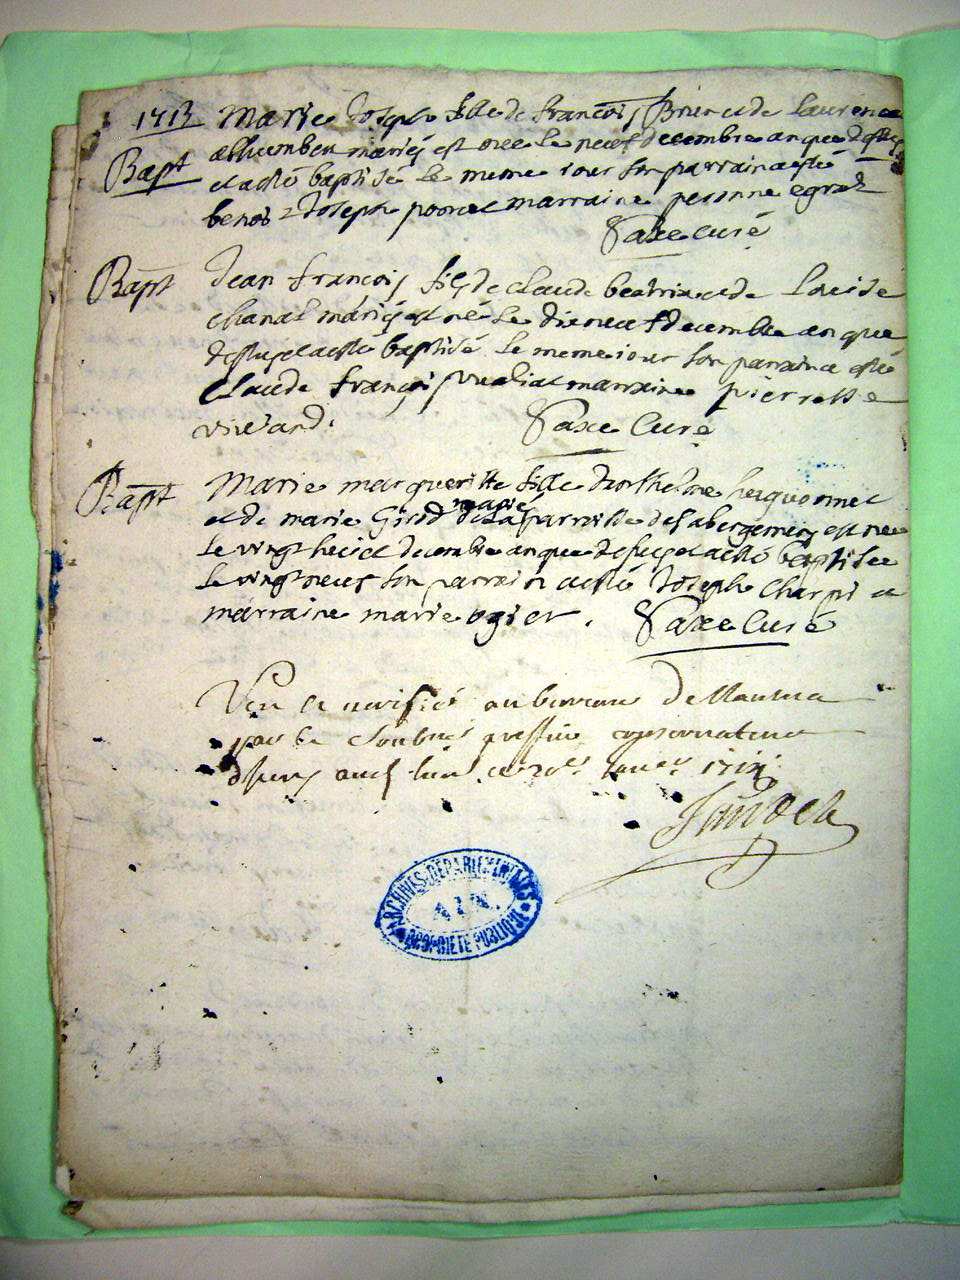 1713 Marie Joseph fille de françois Brun et de Laurence
Bapt mariés est nee le neuf decembre an que dessus
et a esté baptisé le meme jour son parrain a esté
benoi Joseph poncet marraine peronne egraz
Saxe Curé
Bapt Jean françois fils de claude beatrix et de Louise
chanal mariés est né le dieneuf decembre an que
dessus et a esté baptisé le meme jour son parrain a esté
Claude françois vualiat marraine pierrette
vivand.
Saxe Curé
Bapt Marie margueritte fille
et de marie Girod mariés de la parroisse des abergemens est nee
le vingt heuict decembre an que dessus et a esté baptisee
le vingt neuf son parrain a esté Joseph Charpi et
marraine marie ogier.
Saxe Curé
Veu et verifié au bureau de Nantua
par le soubné greffier conservateur
dud lieu ce 20e Janer 1714
ARCHIVES DEPARTEMENTALES
AIN
PROPRIETE PUBLIQUE